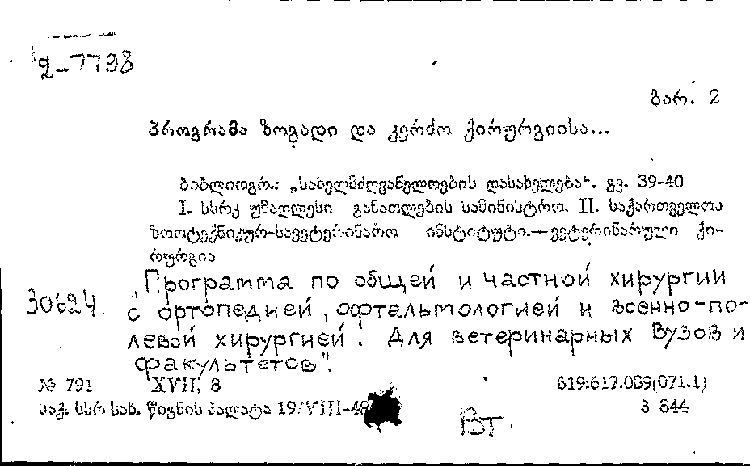 2-7798
ბარ. 2
პროგრამა ზოგადი და კერძო ქირურგიისა...
ბიბლიოგრ.: „სახელმძღვანელოების დასახელება“. გვ. 39-40
I. სსრკ უმაღლესი განათლების სამინისტრო. II. საქართველოს
ზოოტექნიკურ-სავეტერინარო ინსტიტუტი.—ვეტერინარული ქი-
რურგია
"Программа по общей и частной хирургии
30624 с ортопедией, офтельмологией и военно-по-
левой хирургией. Для ветеринарных вузов и
факультетов".
№ 791 XVII, 8 619:617.089(071.1)
საქ. სსრ სახ. წიგნის პალატა 19/VIII-48 პ 644
Вт